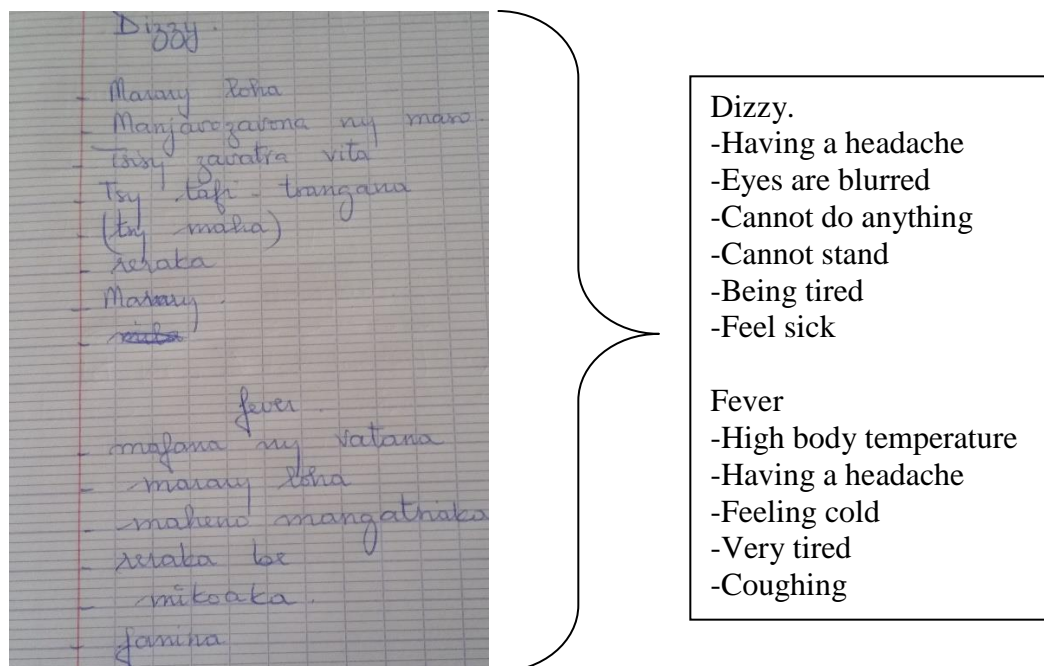 Dizzy.
- Marary loha
- Manjavozavona ny maso.
- Tsisy zavatra vita
- Tsy tafi-trangana
(tsy maha)
- reraka
- Marary.
-
fever.
- mafana ny vatana
- marary loha
- maheno mangatsiaka
- reraka be
- mikoaka.
- fanina
Dizzy.
-Having a headache
-Eyes are blurred
-Cannot do anything
-Cannot stand
-Being tired
-Feel sick
Fever
-High body temperature
-Having a headache
-Feeling cold
-Very tired
-Coughing